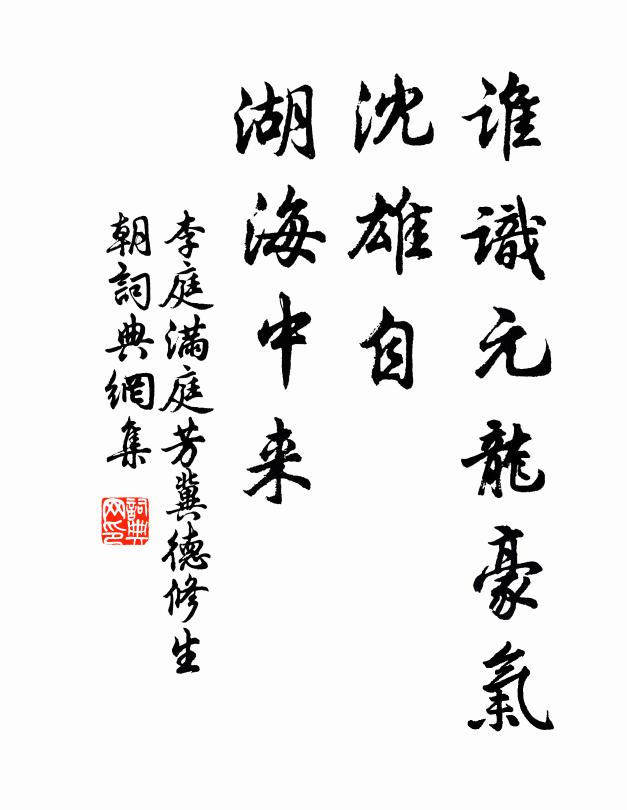 谁識元龍豪氣
沈雄自
湖海中来
李庭满庭芳冀德修生
朝詞典網集
詞典网印